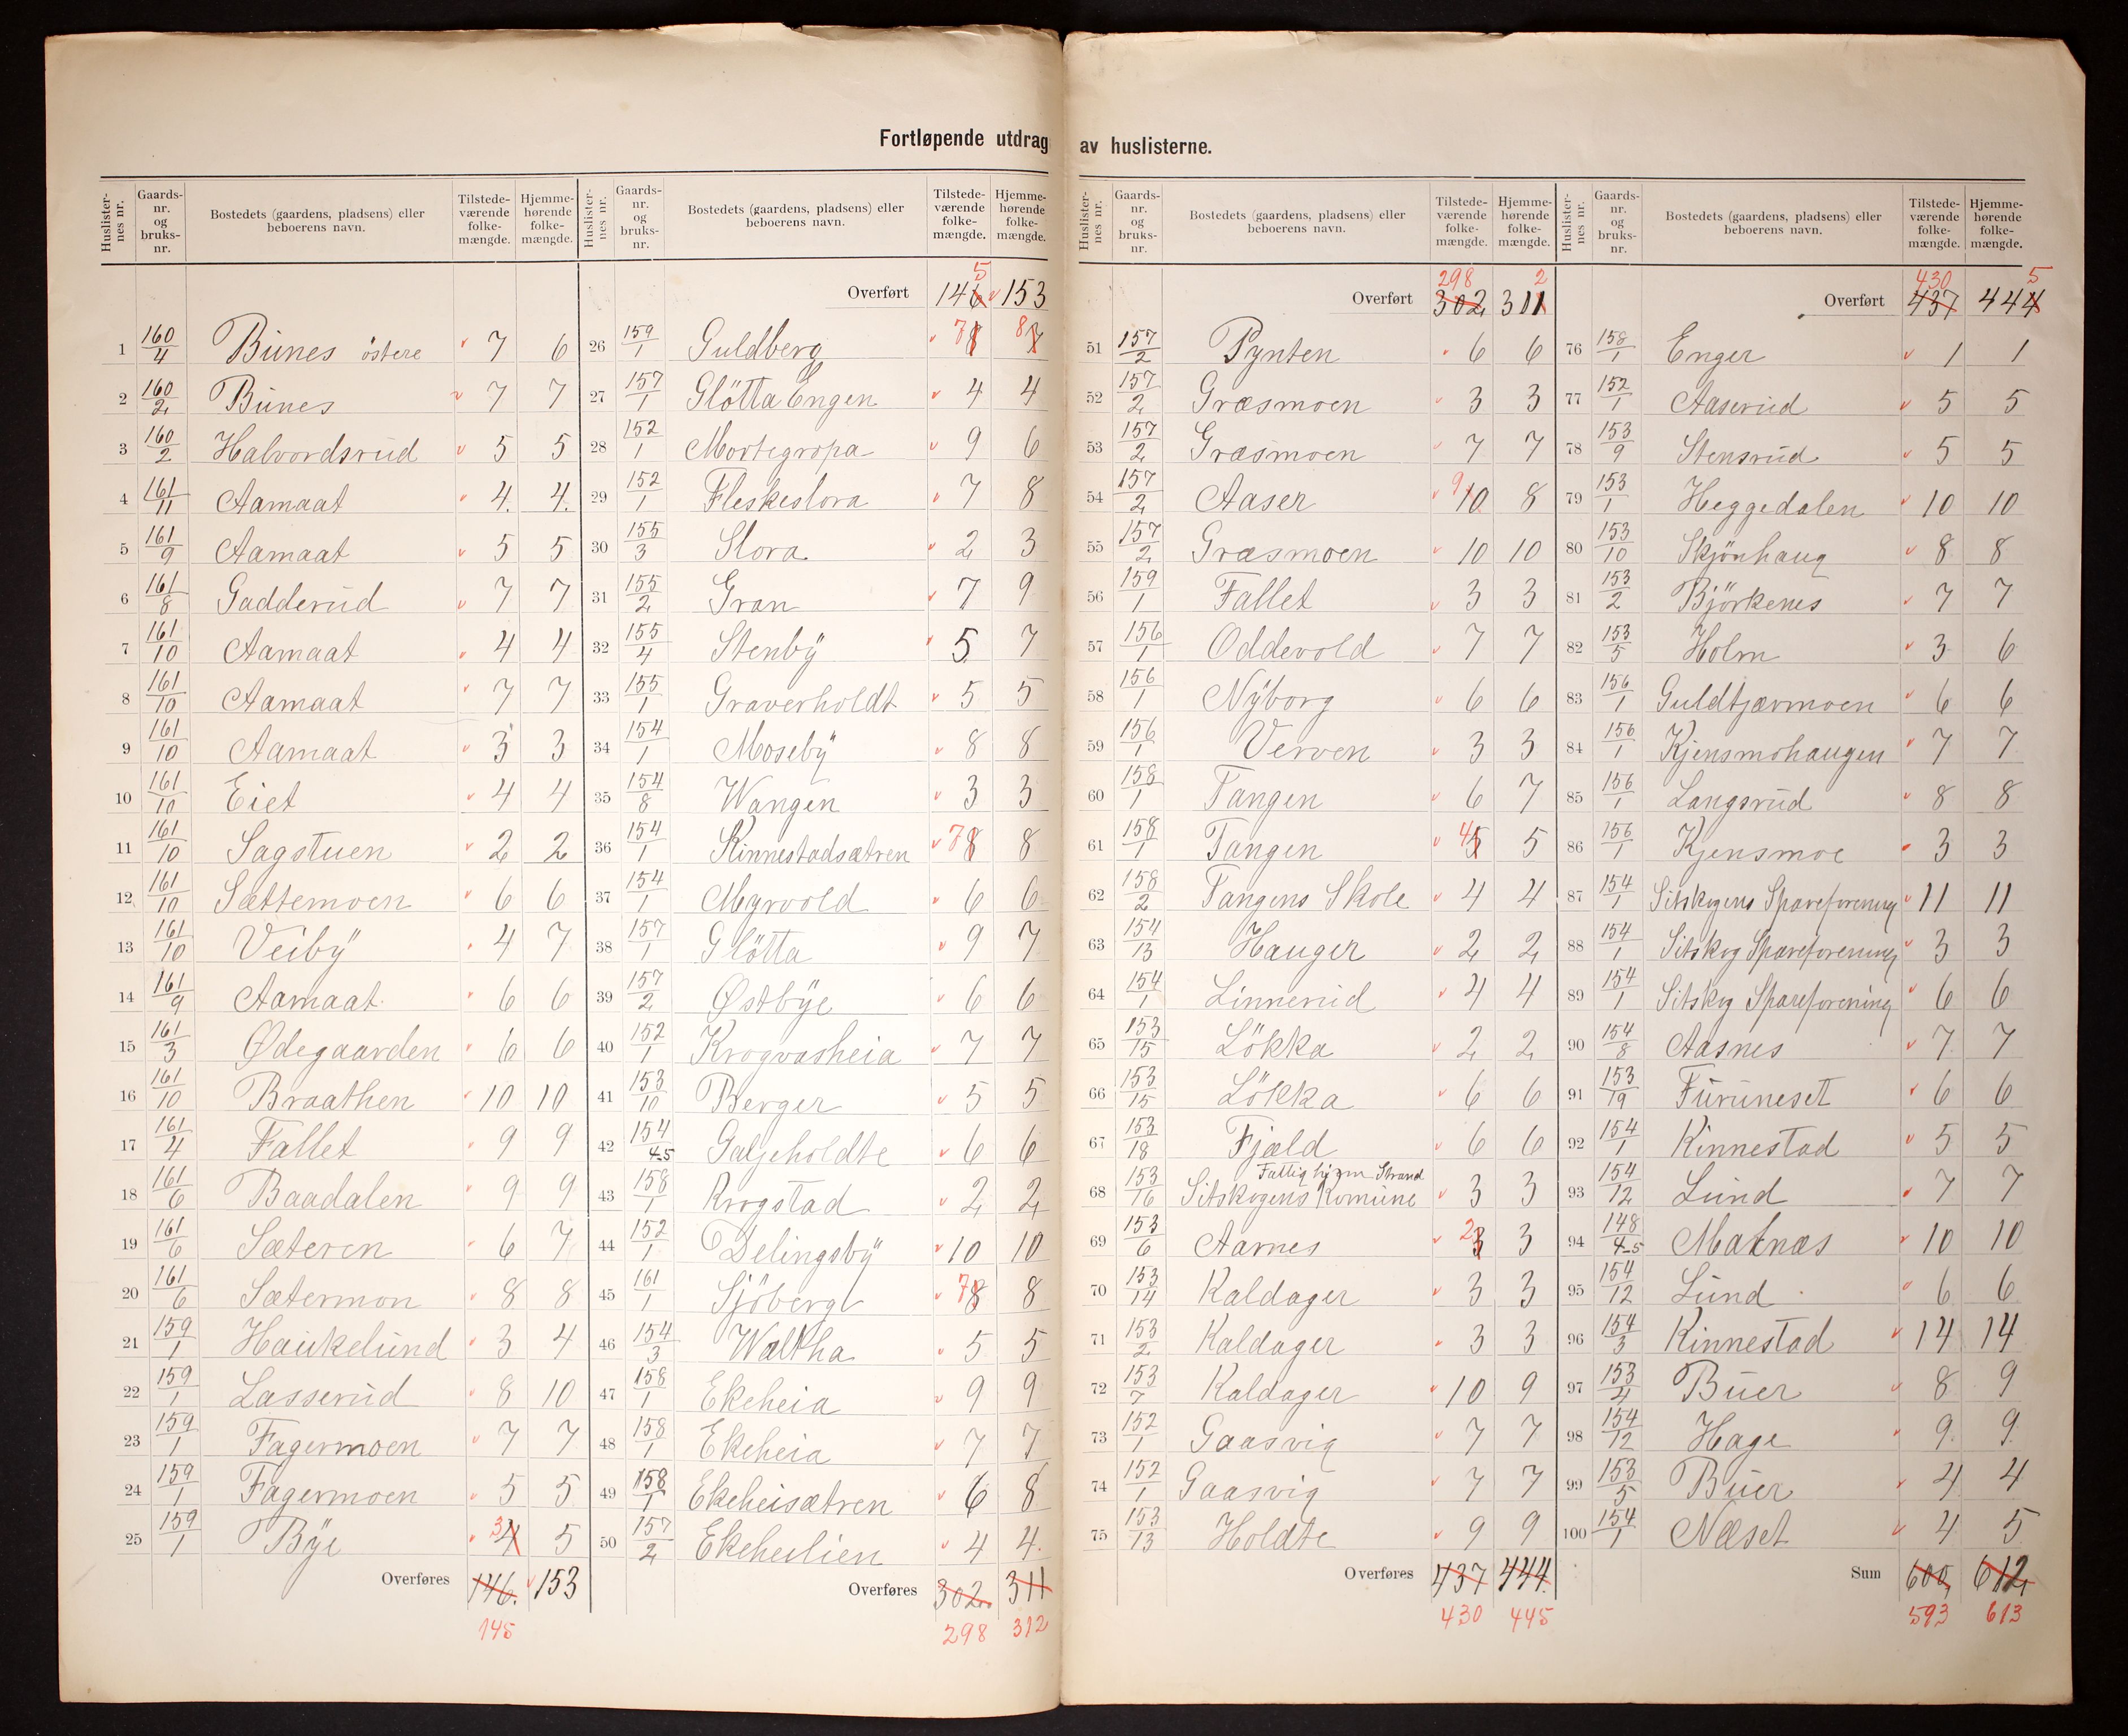 Fortløpende utdrag av huslisterne.
Huslisternes nr. | Gaards-nr. og bruks-nr. | Bostedets (gaardens, pladsens) eller beboerens navn. | Tilstede-værende folke-mængde. | Hjemme-hørende folke-mængde.
1 160/4 Bunes östere 7 6
2 160/2 Bunes 7 7
3 160/2 Halvordsrud 5 5
4 161/11 Aamaat 4. 4.
5 161/9 Aamaat 5 5
6 161/8 Gadderud 7 7
7 161/10 Aamaat 4 4
8 161/10 Aamaat 7 7
9 161/10 Aamaat 3 3
10 161/10 Eiet 4 4
11 161/10 Sagstuen 2 2
12 161/10 Sættemoen 6 6
13 161/10 Veiby 4 7
14 161/9 Aamaat 6 6
15 161/3 Ødegaarden 6 6
16 161/10 Braathen 10 10
17 161/4 Fallet 9 9
18 161/6 Baadalen 9 9
19 161/6 Sæteren 6 7
20 161/6 Sætermon 8 8
21 159/1 Haukelund 3 4
22 159/1 Lasserud 8 10
23 159/1 Fagermoen 7 7
24 159/1 Fagermoen 5 5
25 159/1 Bye 3 4 5
Overføres 146. 153
145
Huslisternes nr. | Gaards-nr. og bruks-nr. | Bostedets (gaardens, pladsens) eller beboerens navn. | Tilstede-værende folke-mængde. | Hjemme-hørende folke-mængde.
5
Overført 146 153
26 159/1 Guldberg 7 8 8 7
27 157/1 Glötta Engen 4 4
28 152/1 Mortegropa 9 6
29 152/1 Fleskeslora 7 8
30 155/3 Slora 2 3
31 155/2 Gran 7 9
32 155/4 Stenby 5 7
33 155/1 Graverholdt 5 5
34 154/1 Moseby 8 8
35 154/8 Wangen 3 3
36 154/1 Kinnestadsætren 7 8 8
37 154/1 Myrvold 6 6
38 157/1 Glötta 9 7
39 157/2 Østbye 6 6
40 152/1 Krogvasheia 7 7
41 153/10 Berger 5 5
42 154/4-5 Galjeholdte 6 6
43 158/1 Krogstad 2 2
44 152/1 Delingsby 10 10
45 161/1 Sjöberg 7 8 8
46 154/3 Waltha 5 5
47 158/1 Ekeheia 9 9
48 158/1 Ekeheia 7 7
49 158/1 Ekeheisætren 6 8
50 157/2 Ekeheilien 4 4.
Overføres 302 311
298 312
Huslisternes nr. | Gaards-nr. og bruks-nr. | Bostedets (gaardens, pladsens) eller beboerens navn. | Tilstede-værende folke-mængde. | Hjemme-hørende folke-mængde.
298 2
Overført 302 311
51 157/2 Pynten 6 6
52 157/2 Græsmoen 3 3
53 157/2 Græsmoen 7 7
54 157/2 Aaser 9 10 8
55 157/2 Græsmoen 10 10
56 159/1 Fallet 3 3
57 156/1 Oddevold 7 7
58 156/1 Nyborg 6 6
59 156/1 Verven 3 3
60 158/1 Tangen 6 7
61 158/1 Tangen 4 5 5
62 158/2 Tangens Skole 4 4
63 154/13 Hauger 2 2
64 154/1 Linnerud 4 4
65 153/15 Lökka 2 2
66 153/15 Lökka 6 6
67 153/18 Fjæld 6 6
Fattig hjem Strand
68 153/16 Sitskogens Komune 3 3
69 153/6 Aarnes 2 3 3
70 153/14 Kaldager 3 3
71 153/2 Kaldager 3 3
72 153/7 Kaldager 10 9
73 152/1 Gaasvig 7 7
74 152/1 Gaasvig 7 7
75 153/13 Holdte 9 9
Overføres 437 444.
430 445
Huslisternes nr. | Gaards-nr. og bruks-nr. | Bostedets (gaardens, pladsens) eller beboerens navn. | Tilstede-værende folke-mængde. | Hjemme-hørende folke-mængde.
430 5
Overført 437 444
76 158/1 Enger 1 1
77 152/1 Aaserud 5 5
78 153/9 Stensrud 5 5
79 153/1 Heggedalen 10 10
80 153/10 Skjönhaug 8 8
81 153/2 Björkenes 7 7
82 153/5 Holm 3 6
83 156/1 Guldtjærmoen 6 6
84 156/1 Kjensmohaugen 7 7
85 156/1 Langsrud 8 8
86 156/1 Kjensmoe 3 3
87 154/1 Sitskogens Spareforening 11 11
88 154/1 Sitskog Spareforening 3 3
89 154/1 Sitskog Spareforening 6 6
90 154/8 Aasnes 7 7
91 153/19 Furuneset 6 6
92 154/1 Kinnestad 5 5
93 154/12 Lund 7 7
94 148/4-5 Matnæs 10 10
95 154/12 Lund 6 6
96 154/3 Kinnestad 14 14
97 153/4 Buer 8 9
98 154/12 Hage 9. 9.
99 153/5 Buer 4 4
100 154/1 Næset 4 5
Sum 600, 612,
593 613